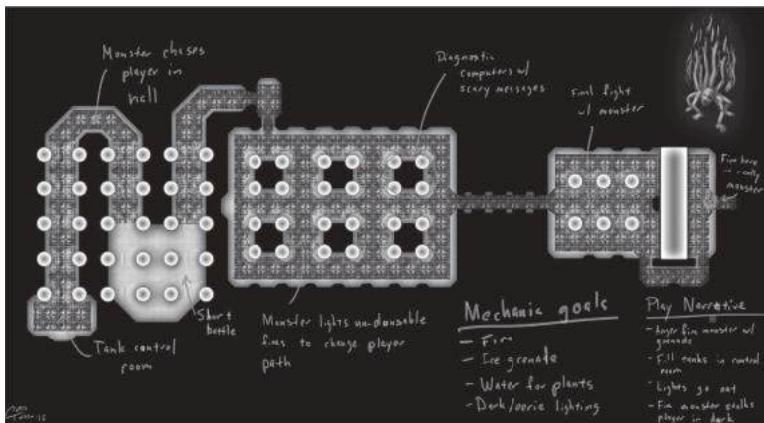 Monster chases
player in
hall
Diagnostic
computers w/
scary messages
Final fight
w/ monster
Fire here
is really
monster
Short
battle
Tank control
room
Monster lights un-dousable
fires to change player
path
Mechanic goals
- Fire
- Ice grenade
- Water for plants
- Dark/eerie lighting
Play Narrative
- Anger fire monster w/
grenade
- Fill tanks in control
room
- Lights go out
- Fire monster stalks
player in dark